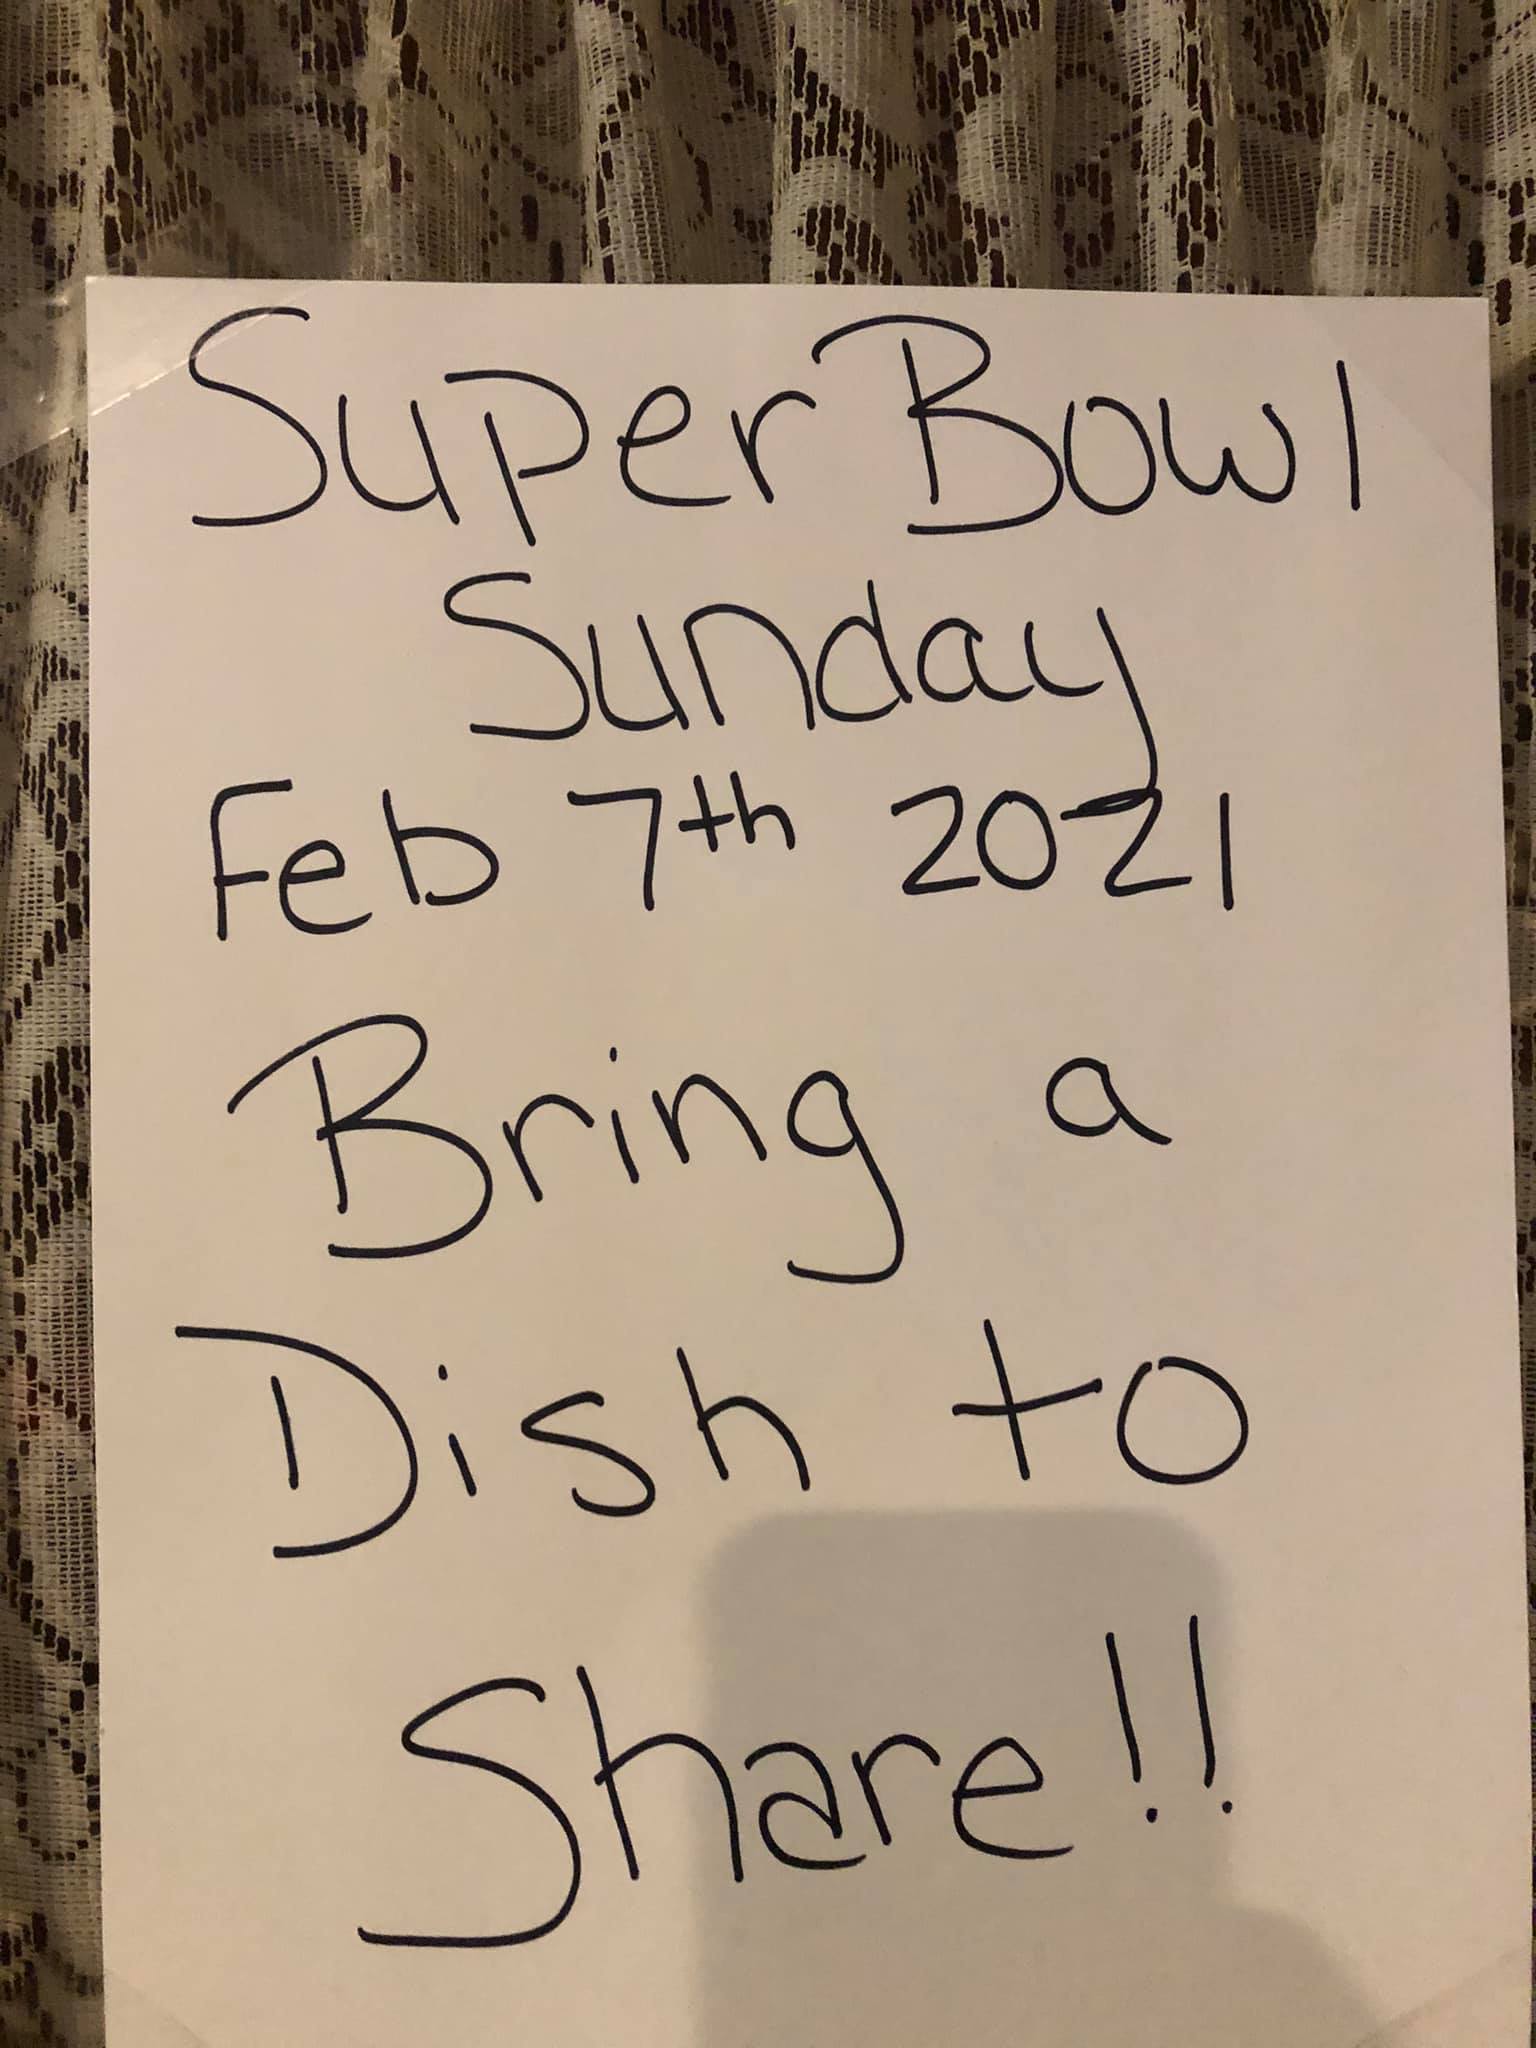 Super Bowl
Sunday
Feb 7th 2021
Bring a
Dish to
Share!!